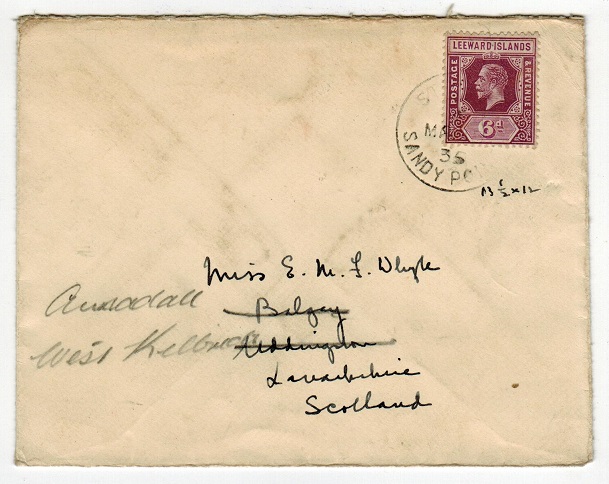 LEEWARD ISLANDS
POSTAGE & REVENUE
6d
MA
35
SANDY PO
13 1/2 x 12
Miss E. M. F. Whyte
Balgay
Uddingston
Lanarkshire
Scotland
West Kilbride